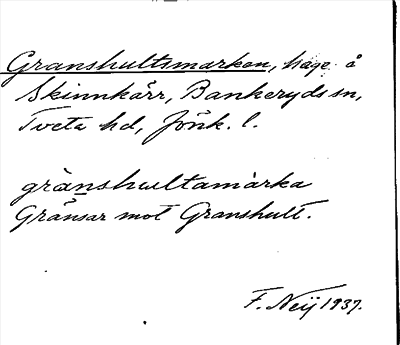 Granshultsmarken, hage å
Skinnkärr, Bankeryds sn,
Tveta hd, Jönk. l.
grànshultamàrka
Gränsar mot Granshult.
F. Neij 1937.